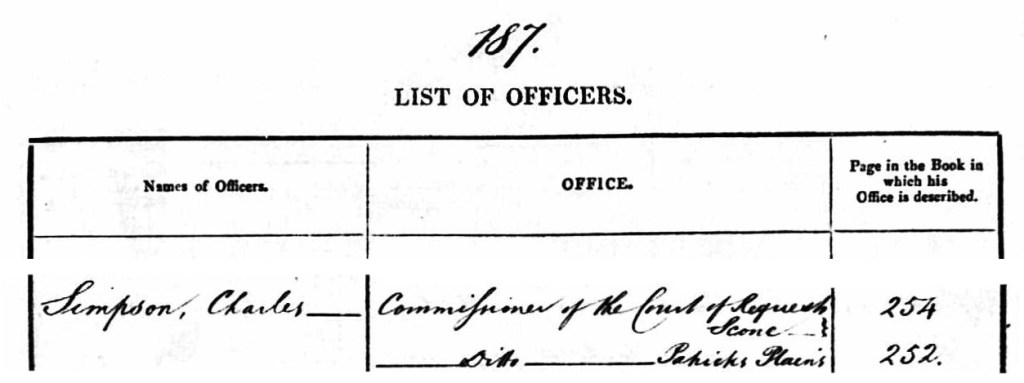 187.
LIST OF OFFICERS.
Names of Officers.
OFFICE.
Page in the Book in
which his
Office is described.
Simpson, Charles
Commissioner of the Court of Requests
254
Scone
Ditto Patricks Plains
252.